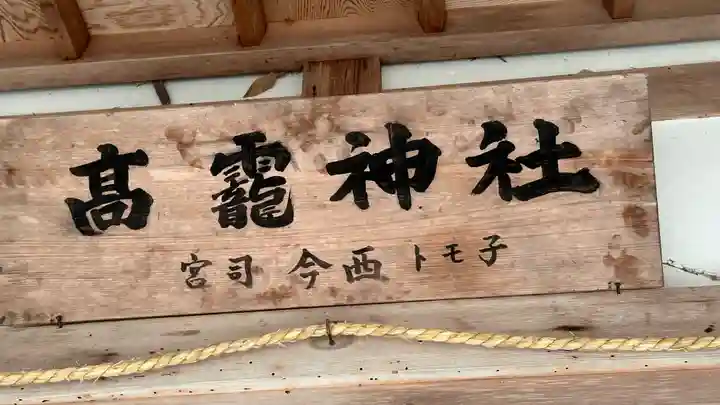 髙龗神社
宮司 今西トモ子